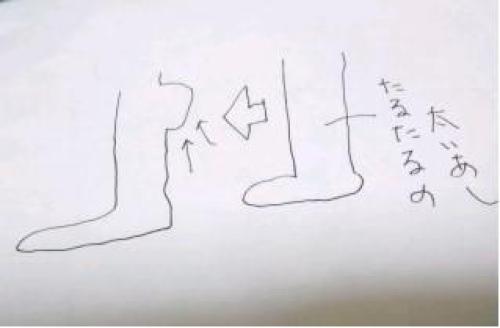 たるたるの
太いあし